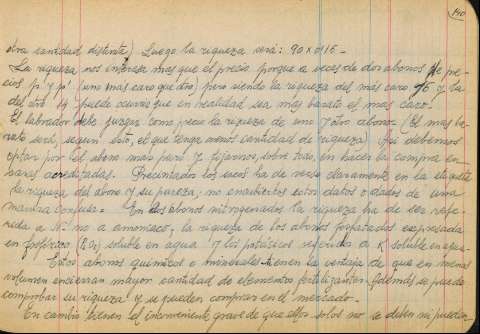 140
otra cantidad distinta) Luego la riqueza será: 90 x 0'15 -
La riqueza nos interesa mas que el precio porque a veces de dos abonos de pre-
cios p y p' (uno mas caro que otro) pero siendo la riqueza del más caro 15 y la
del otro 14 puede ocurrir que en realidad sea mas barato el mas caro.-
El labrador debe juzgar como precio la riqueza de uno y otro abono (El mas ba-
rato será, según esto, el que tenga menos cantidad de riqueza) Así debemos
optar por el abono mas puro y fijarnos, sobre todo, en hacer la compra en
bases acreditadas. Precintados los sacos ha de verse claramente en la etiqueta
la riqueza del abono y su pureza, no enabiertos estos datos o dados de una
manera confusa.- En los abonos nitrogenados la riqueza ha de ser refe-
rida a N2 no a amoniaco, la riqueza de los abonos fosfatados expresada
en fosfórico soluble en agua y los potásicos referidos a K soluble en agua
Estos abonos químicos o minerales tienen la ventaja de que en menos
volumen encierran mayor cantidad de elementos fertilizantes. Además se puede
comprobar su riqueza y se pueden comprar en el mercado.-
En cambio tienen el inconveniente grave de que ellos solos no se deben ni pueden